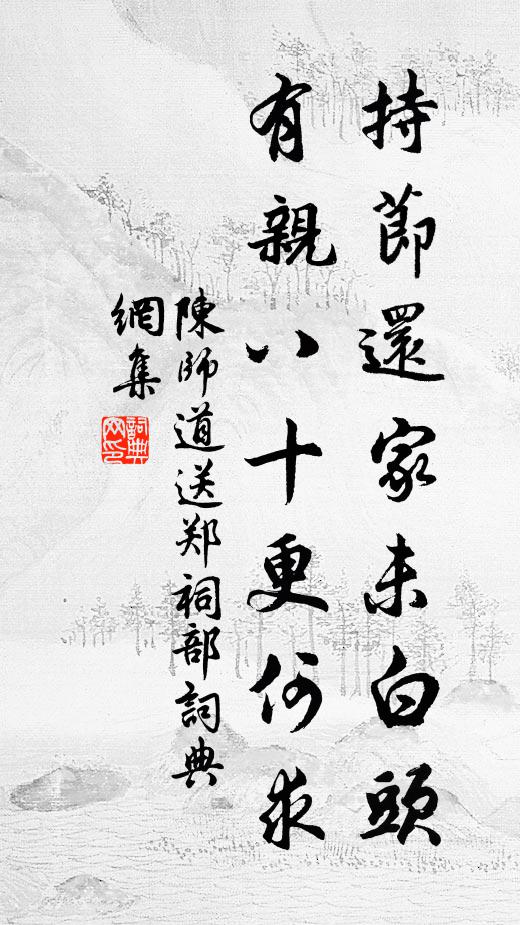 持節還家未白頭
有親八十更何求
陳師道送郑祠部詞典
網集
詞典网印